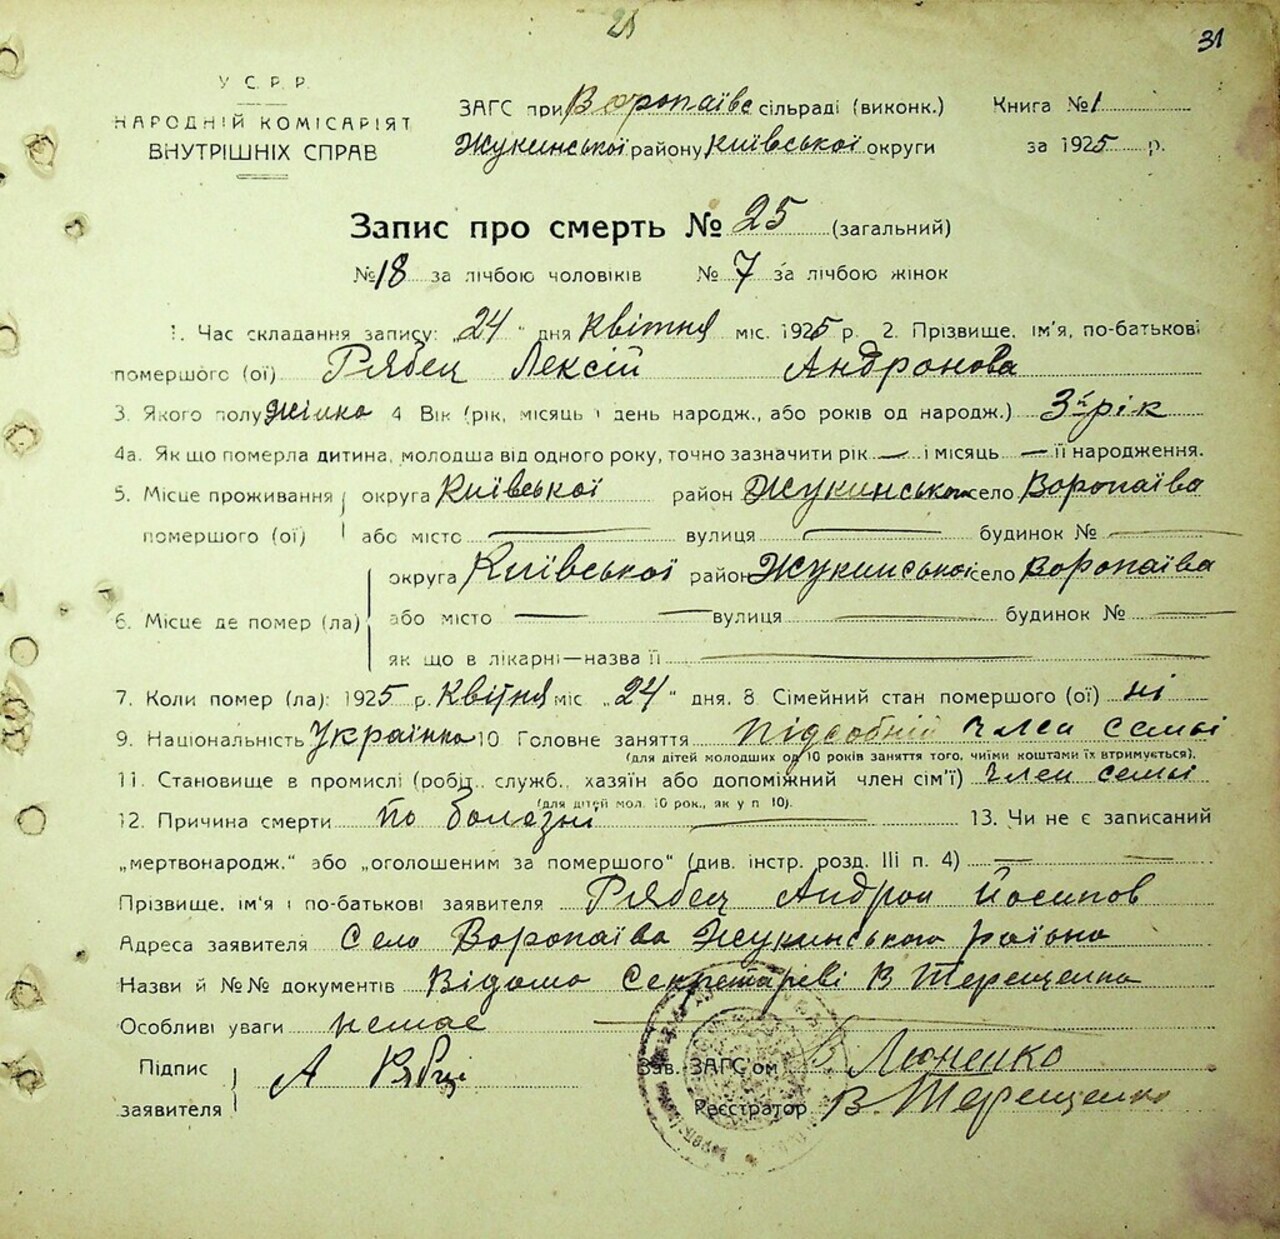 21
31
У С. Р. Р.
НАРОДНІЙ КОМІСАРІЯТ
ВНУТРІШНІХ СПРАВ
ЗАГС при Воропаївс сільраді (виконк.) Книга № 1
Жукинської району Київської округи за 1925 р.
Запис про смерть № 25 (загальний)
№ 18 за лічбою чоловіків № 7 за лічбою жінок
1. Час складання запису: „24" дня Квітня міс. 1925 р. 2. Прізвище, ім'я, по-батькові
помершого (ої) Рябец Лексій Андронова
3. Якого полу жінка 4 Вік (рік, місяць і день народж., або років од народж.) 3й рік
4а. Як що померла дитина, молодша від одного року, точно зазначити рік — і місяць — її народження.
5. Місце проживання округа Київської район Жукинською село Воропаїва
помершого (ої) або місто — вулиця — будинок № —
округа Київської район Жукинської село Воропаїва
6. Місце де помер (ла) або місто — вулиця — будинок № —
як що в лікарні—назва її —
7. Коли помер (ла): 1925 р. Квітня міс „24" дня. 8 Сімейний стан помершого (ої) ні
9. Національність Українка 10 Головне заняття підсобній член семьі
(для дітей молодших од 10 років заняття того, чиїми коштами їх втримується).
11. Становище в промислі (робіт., служб., хазяїн або допоміжний член сім'ї) член семьі
(для дітей мол. 10 рок., як у п 10).
12. Причина смерти по болезні — 13. Чи не є записаний
„мертвонародж." або „оголошеним за помершого" (див. інстр. розд. III п. 4) — —
Прізвище, ім'я і по-батькові заявителя Рябец Андрон Йосипов
Адреса заявителя Село Воропаїва Жукинського раїона
Назви й №№ документів Відомо Секретареві В Терещенко
Особливі уваги немає
Підпис заявителя А Рябц
Зав. ЗАГС'ом В Люненко
Реєстратор В. Терещенко